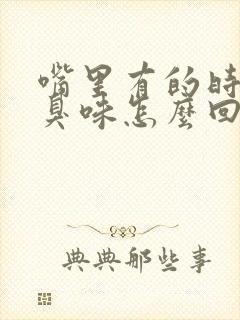 嘴里有的时
臭味怎麽回
典典那些事